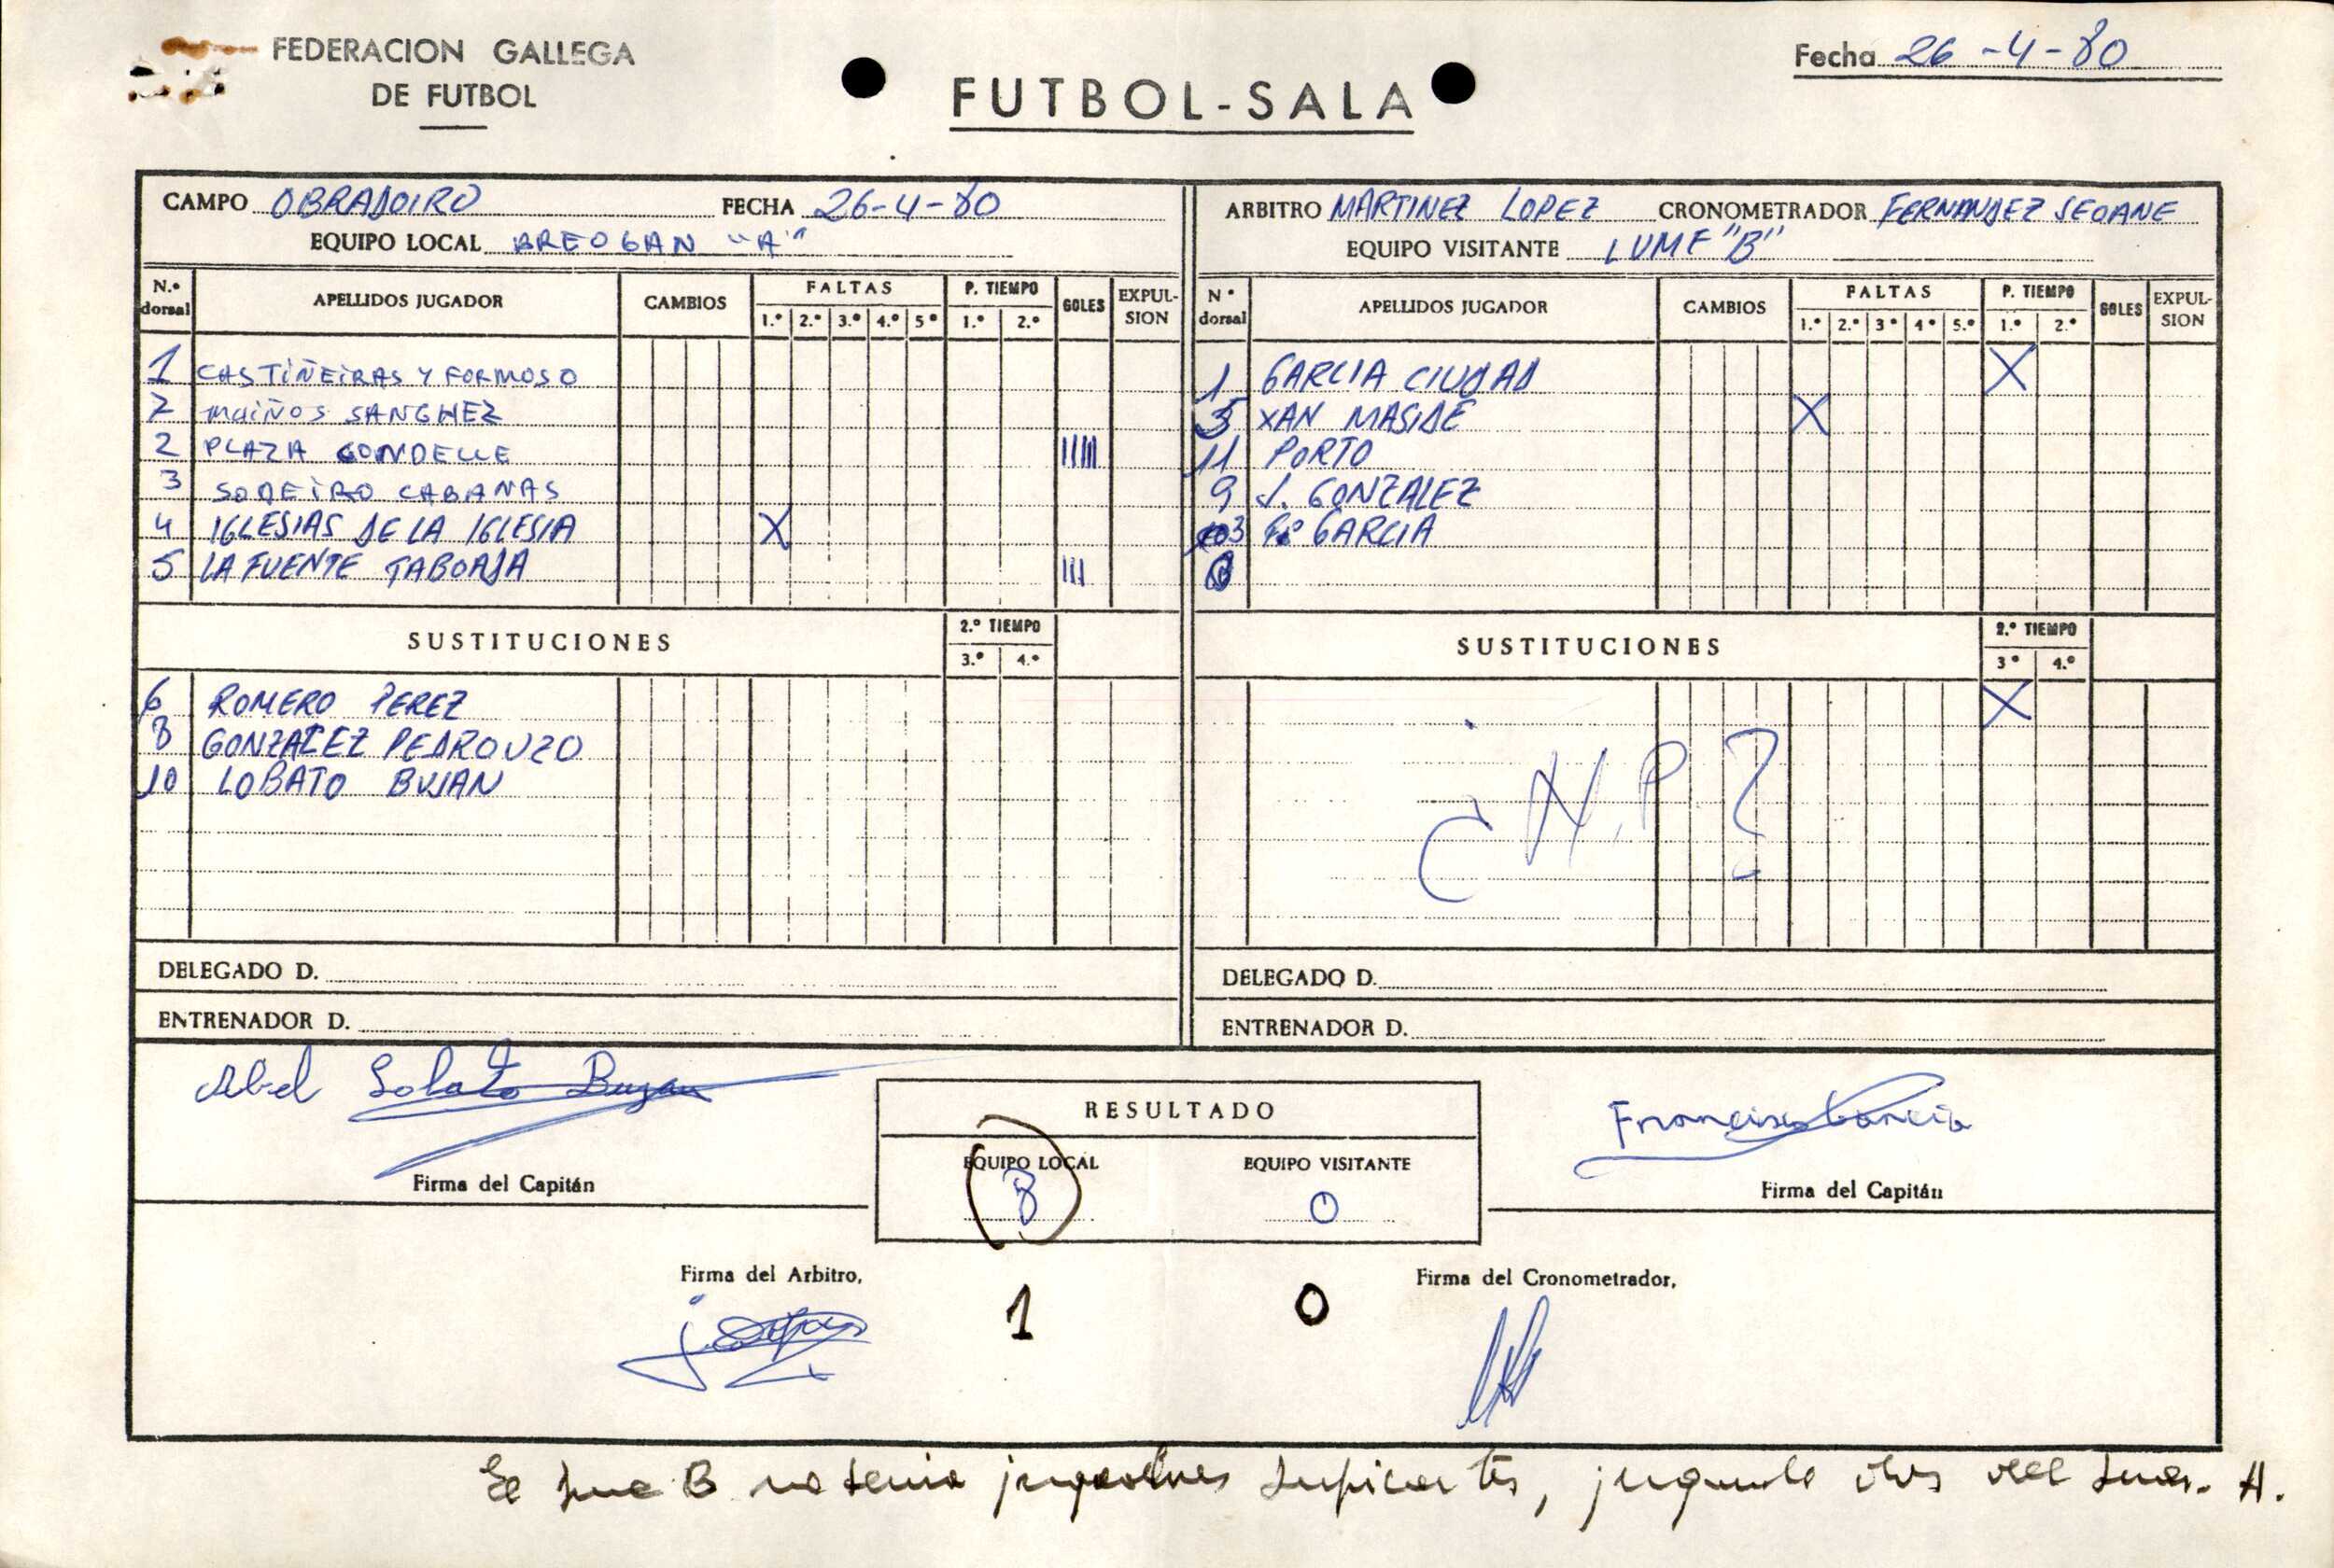 FEDERACION GALLEGA
DE FUTBOL
FUTBOL-SALA
Fecha 26-4-80
CAMPO OBRADOIRO FECHA 26-4-80
EQUIPO LOCAL BREOGAN "A"
N.º dorsal APELLIDOS JUGADOR CAMBIOS FALTAS 1.º 2.º 3.º 4.º 5º P. TIEMPO 1.º 2.º GOLES EXPULSION
1 CASTIÑEIRAS Y FORMOSO
7 MUIÑOS SANCHEZ
2 PLAZA GONDELLE IIIII
3 SOREIRO CABANAS
4 IGLESIAS DE LA IGLESIA X
5 LAFUENTE TABOADA III
SUSTITUCIONES 2.º TIEMPO 3.º 4.º
6 ROMERO PEREZ
8 GONZALEZ PEDROUZO
10 LOBATO BUJAN
DELEGADO D.
ENTRENADOR D.
ARBITRO MARTINEZ LOPEZ CRONOMETRADOR FERNANDEZ SEOANE
EQUIPO VISITANTE LUME "B"
Nº dorsal APELLIDOS JUGADOR CAMBIOS FALTAS 1.º 2.º 3º 4º 5.º P. TIEMPO 1.º 2.º GOLES EXPULSION
1 GARCIA CIUDAD X
5 XAN MASIDE X
11 PORTO
9 J. GONZALEZ
3 Fº GARCIA
SUSTITUCIONES 2.º TIEMPO 3º 4.º
X
¿N.P?
DELEGADO D.
ENTRENADOR D.
Abel Lobato Bujan
Firma del Capitán
RESULTADO
EQUIPO LOCAL EQUIPO VISITANTE
8 0
Francisco Garcia
Firma del Capitán
Firma del Arbitro,
1 0
Firma del Cronometrador,
El Lume B no tenia jugadores suficientes, jugando dos del Lume. A.